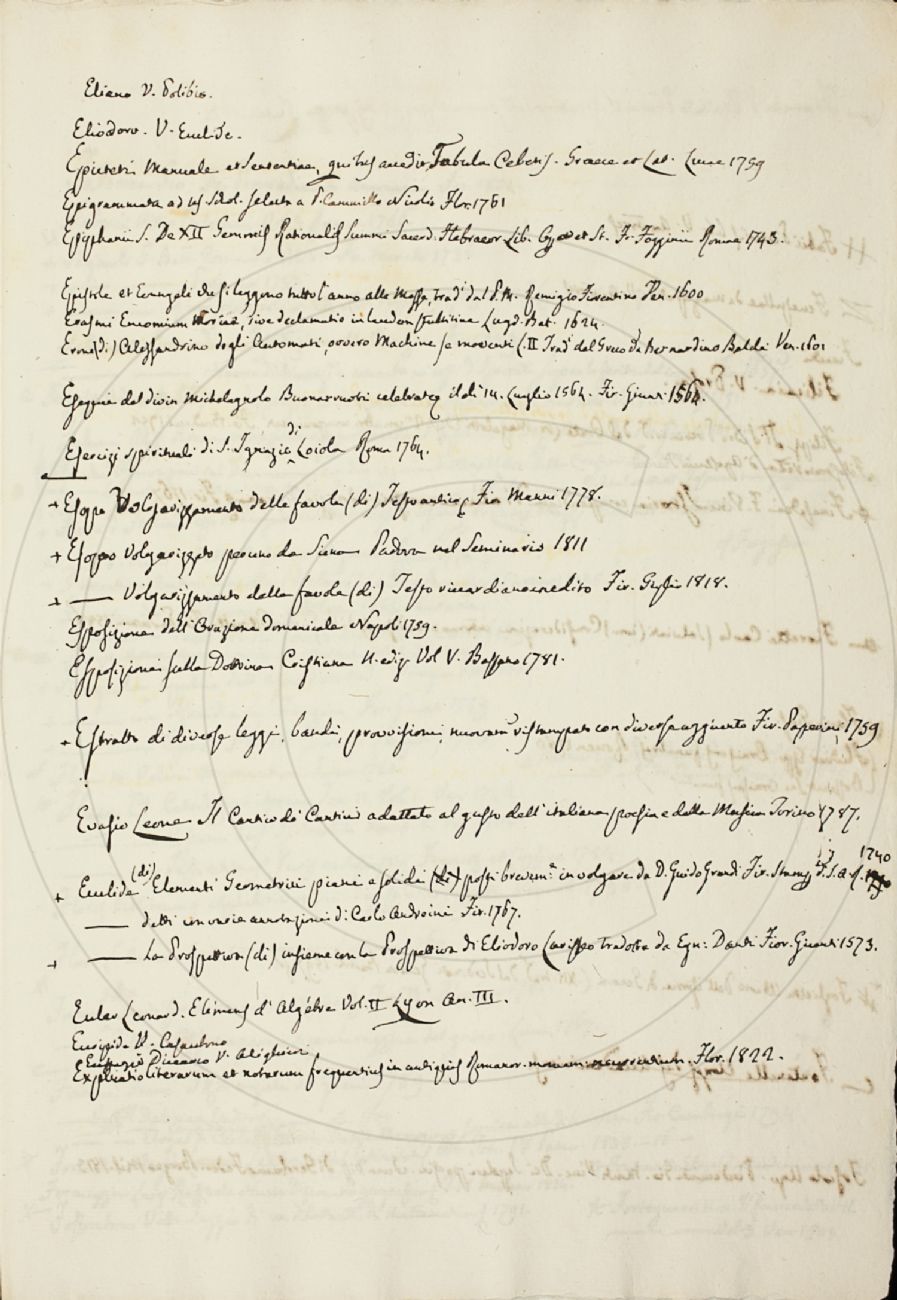 Eliano V. Polibio.
Eliodoro. V. Euclide.
Epicteti Manuale et Sententiae, quibus accedit Tabula Cebetis. Graece et Lat. Lucae 1759
Epigrammata ad us. Schol. selecta a P. Cammillo Nicolis Flor. 1761
Epiphanii S. De XII Gemmis Rationalis Summi Sacerd. Hebraeor. Lib. Op. et St. Fr. Fogginii Romae 1743.
Epistole et Evangeli che si leggono tutto l'anno alla Messa, trad. dal P. M. Remigio Fiorentino Ven. 1600
Erasmi Encomium Moriae, sive declamatio in laudem stultitiae Lugd. Bat. 1624.
Erone (di) Alessandrino degli Automati, ovvero Machine se moventi L. II Trad. dal Greco da Bernardino Baldi Ven. 1601
Esequie del divin Michelagnolo Buonarruoti celebrate il dì 14. Luglio 1564. Fir. Giunti 1564.
Esercizi spirituali di S. Ignazio di Loiola Roma 1764.
+ Esopo Volgarizzamento delle favole (di) Testo antico Fir. Manni 1778.
+ Esoppo Volgarizzato per uno da Siena Padova nel Seminario 1811
+ —— Volgarizzamento delle favole (di) Testo riccardiano inedito Fir. 1818.
Esposizione dell'Orazione domenicale Napoli 1759.
Esposizione sulla Dottrina Cristiana Vol. V. Bassano 1781.
+ Estratto di diverse leggi, bandi, provvisioni, nuovam. ristampato con diverse aggiunte Fir. 1759
Evasio Leone Il Cantico de' Cantici adattato al gusto dell'italiana poesia e della Musica Torino 1787.
+ Euclide (di) Elementi Geometrici piani e solidi (di) posti brevem. in volgare da D. Guido Grandi Fir. Stamp. S. A. R. 1740
—— detti con varie annotazioni di Carlo Andreini Fir. 1767.
+ —— La Prospettiva (di) insieme con la Prospettiva di Eliodoro Larisseo tradotta da Egn: Danti Fior. Giunti 1573.
Euler Leonard. Elémens d'Algébre Vol. II Lyon An. III.
Euripide V. Casaubono
Dicearco V. Alighieri
Explicatio literarum et notarum frequentius in antiquis Romanor. monum. occurrentium. Flor. 1822.